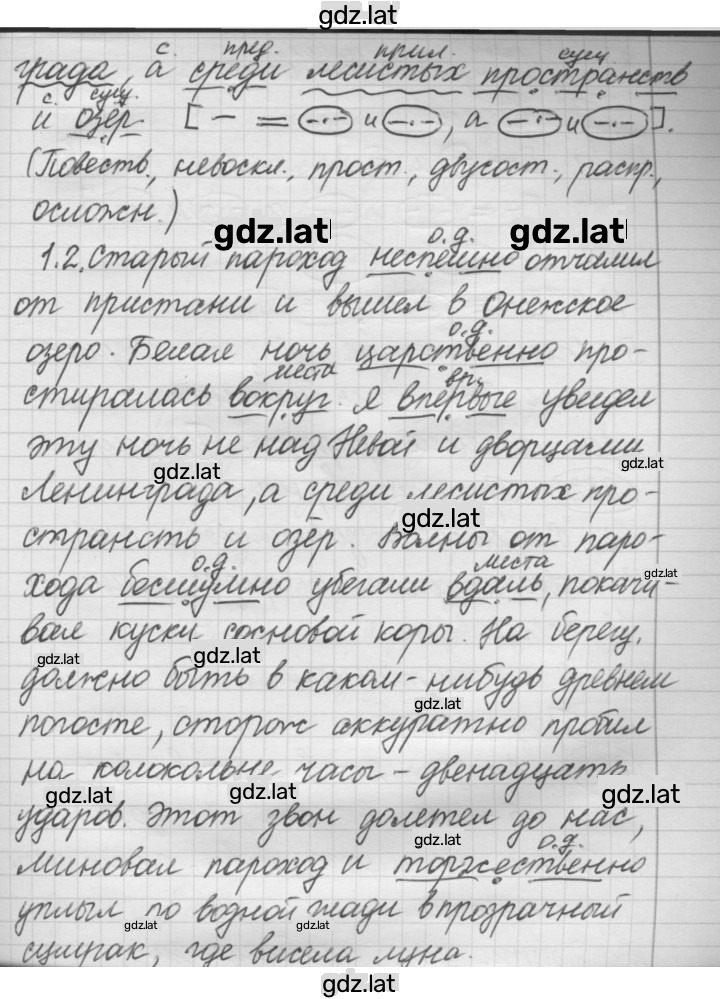 gdz.lat
с. пред. прил. сущ.
града, а среди лесистых пространств
с. сущ.
и озёр [— = —·— и —·—, а —·— и —·—].
(Повеств., невоскл., прост., двусост., распр.,
осложн.)
gdz.lat gdz.lat
о.д.
1.2. Старый пароход неспешно отчалил
от пристани и вышел в Онежское
о.д.
озеро. Белая ночь царственно про-
места вр.
стиралась вокруг. Я впервые увидел
эту ночь не над Невой и дворцами
gdz.lat gdz.lat
Ленинграда, а среди лесистых про-
gdz.lat
странств и озёр. Волны от паро-
о.д. места
хода бесшумно убегали вдаль, покачи-
gdz.lat
вая куски сосновой коры. На берегу,
gdz.lat gdz.lat
должно быть в каком-нибудь древнем
gdz.lat
погосте, сторож аккуратно пробил
на колокольне часы – двенадцать
gdz.lat gdz.lat gdz.lat
ударов. Этот звон долетел до нас,
gdz.lat о.д.
миновал пароход и торжественно
уплыл по водной глади в прозрачный
gdz.lat gdz.lat
сумрак, где висела луна.
gdz.lat